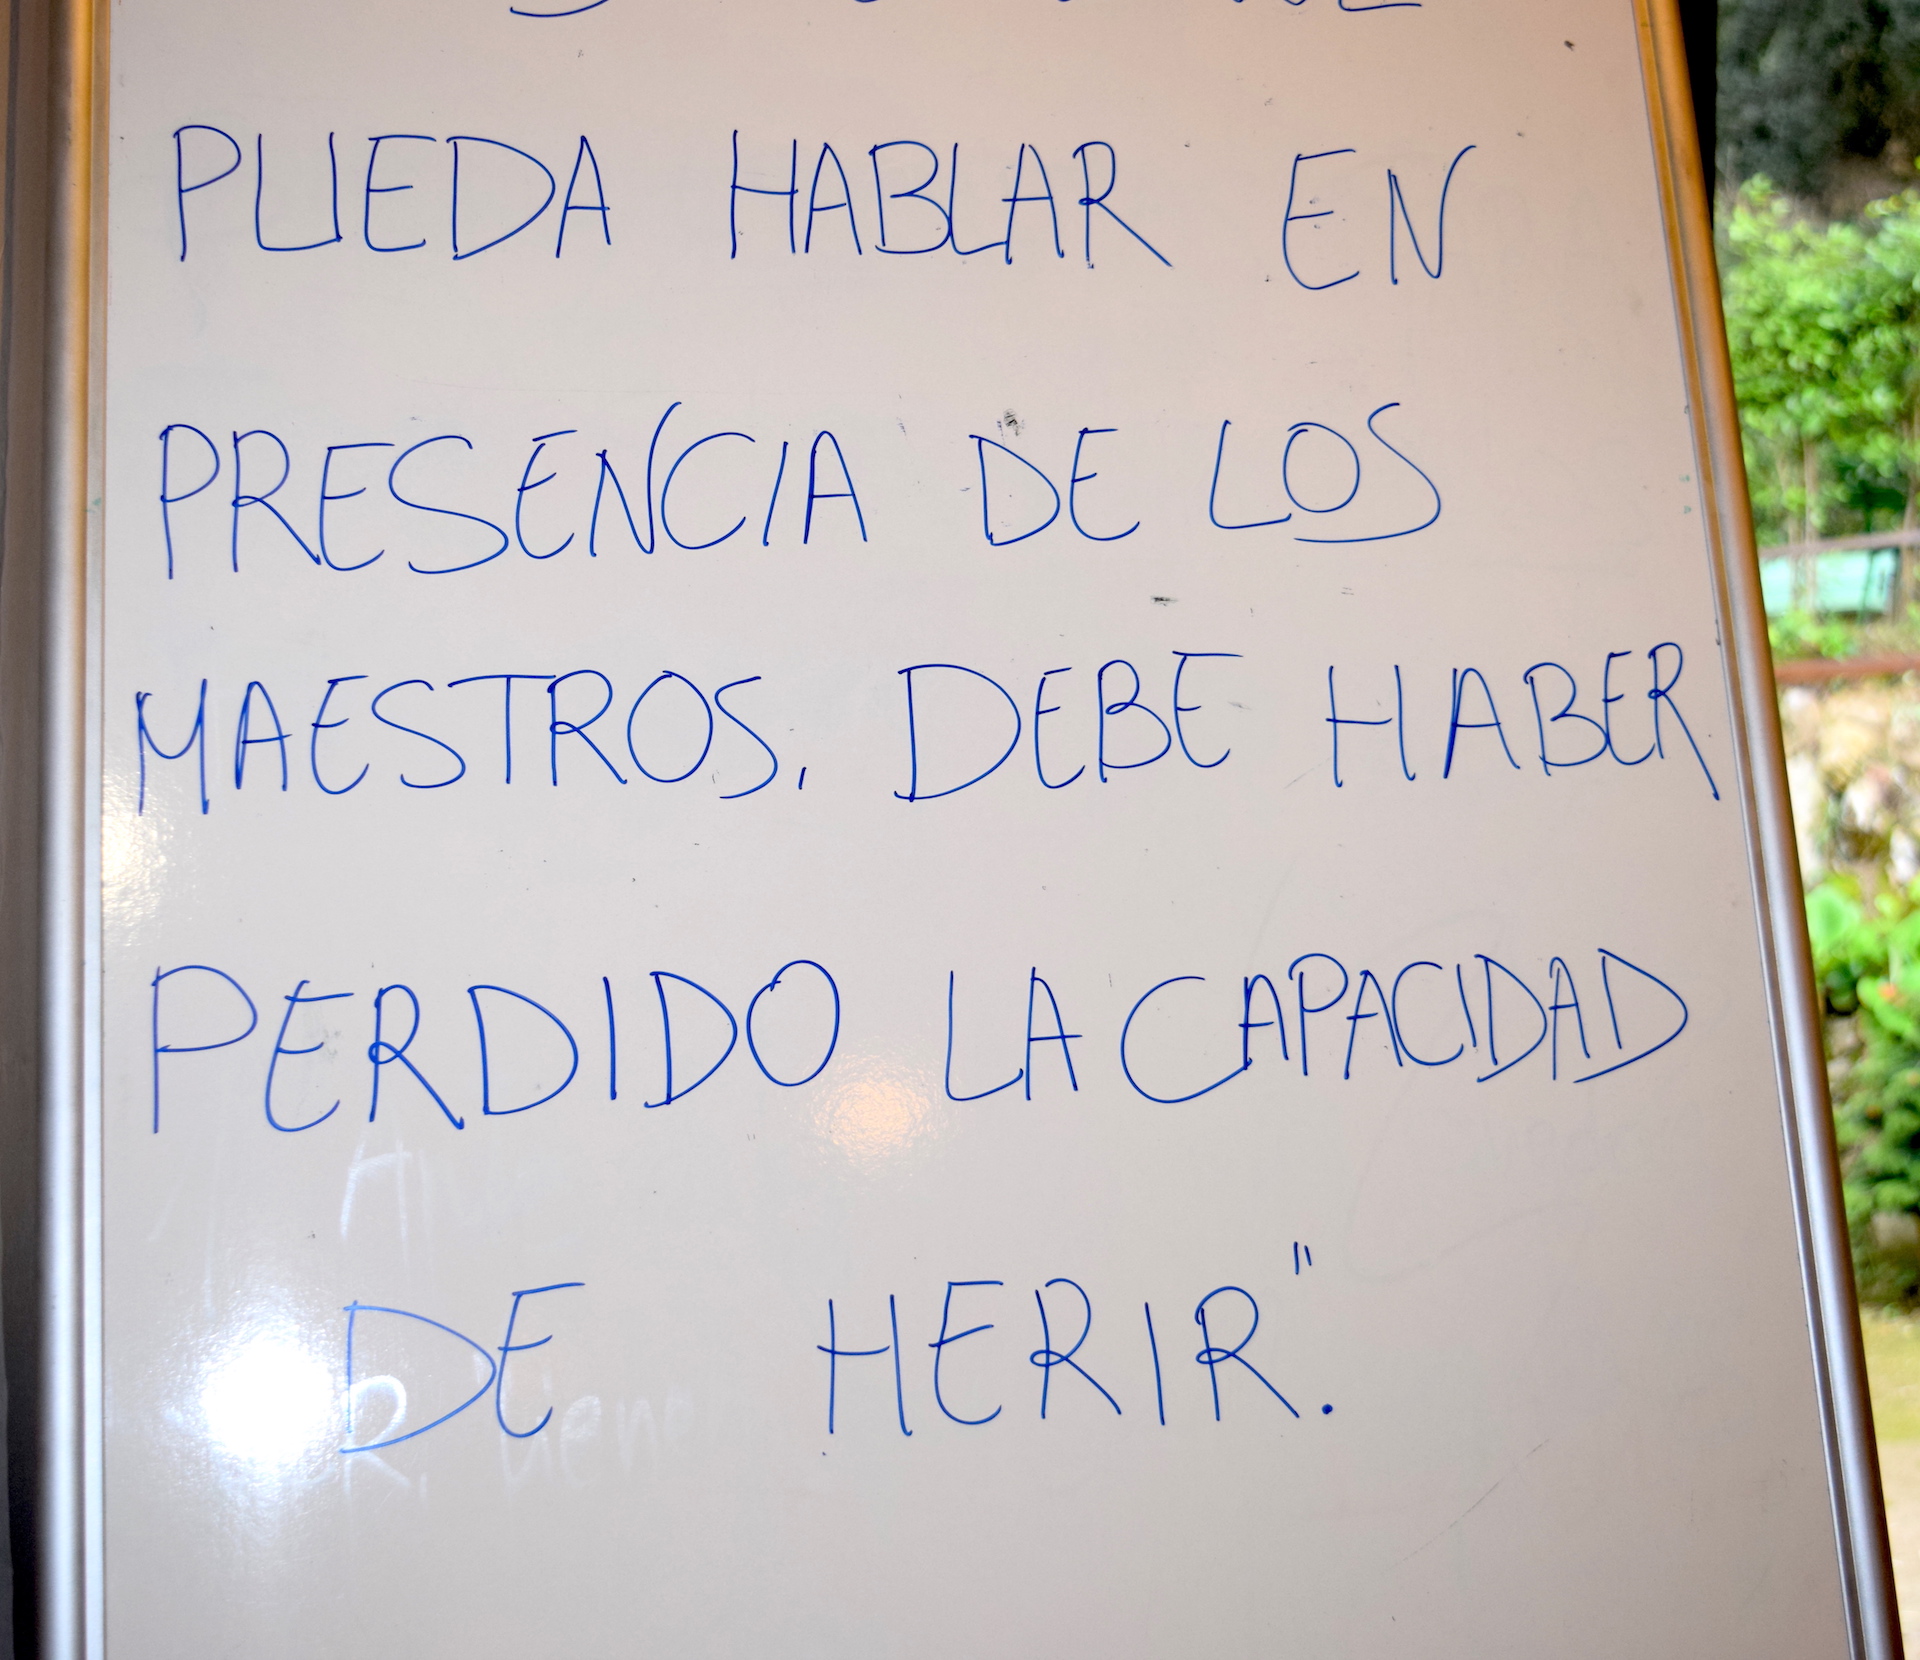 PUEDA HABLAR EN
PRESENCIA DE LOS
MAESTROS, DEBE HABER
PERDIDO LA CAPACIDAD
DE HERIR."